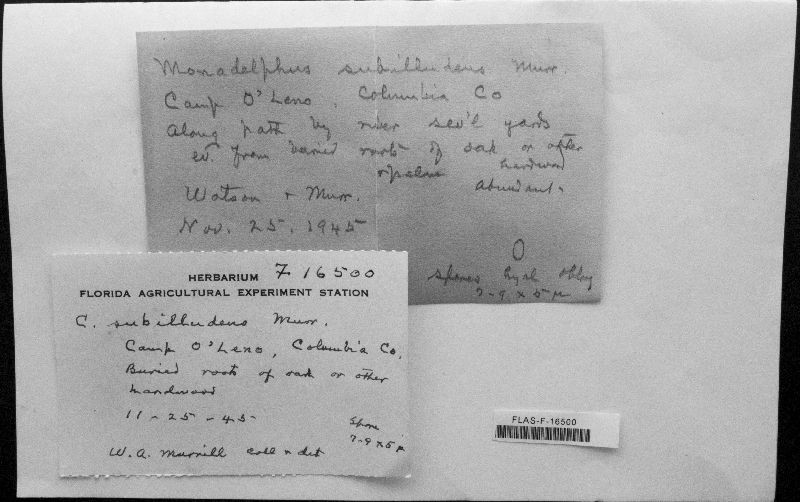 Monadelphus subilludens Murr.
Camp O'Leno, Columbia Co
Along path by river sev'l yards
ev. from buried roots of oak or other
hardwood
abundant.
Watson + Murr.
Nov. 25, 1945
spores hyal oblong
7-9 x 5 µ
HERBARIUM F 16500
FLORIDA AGRICULTURAL EXPERIMENT STATION
C. subilludens Murr.
Camp O'Leno, Columbia Co,
Buried roots of oak or other
hardwood
11-25-45
Spore
7-9 x 5 µ
W. A. Murrill coll + det
FLAS-F-16500